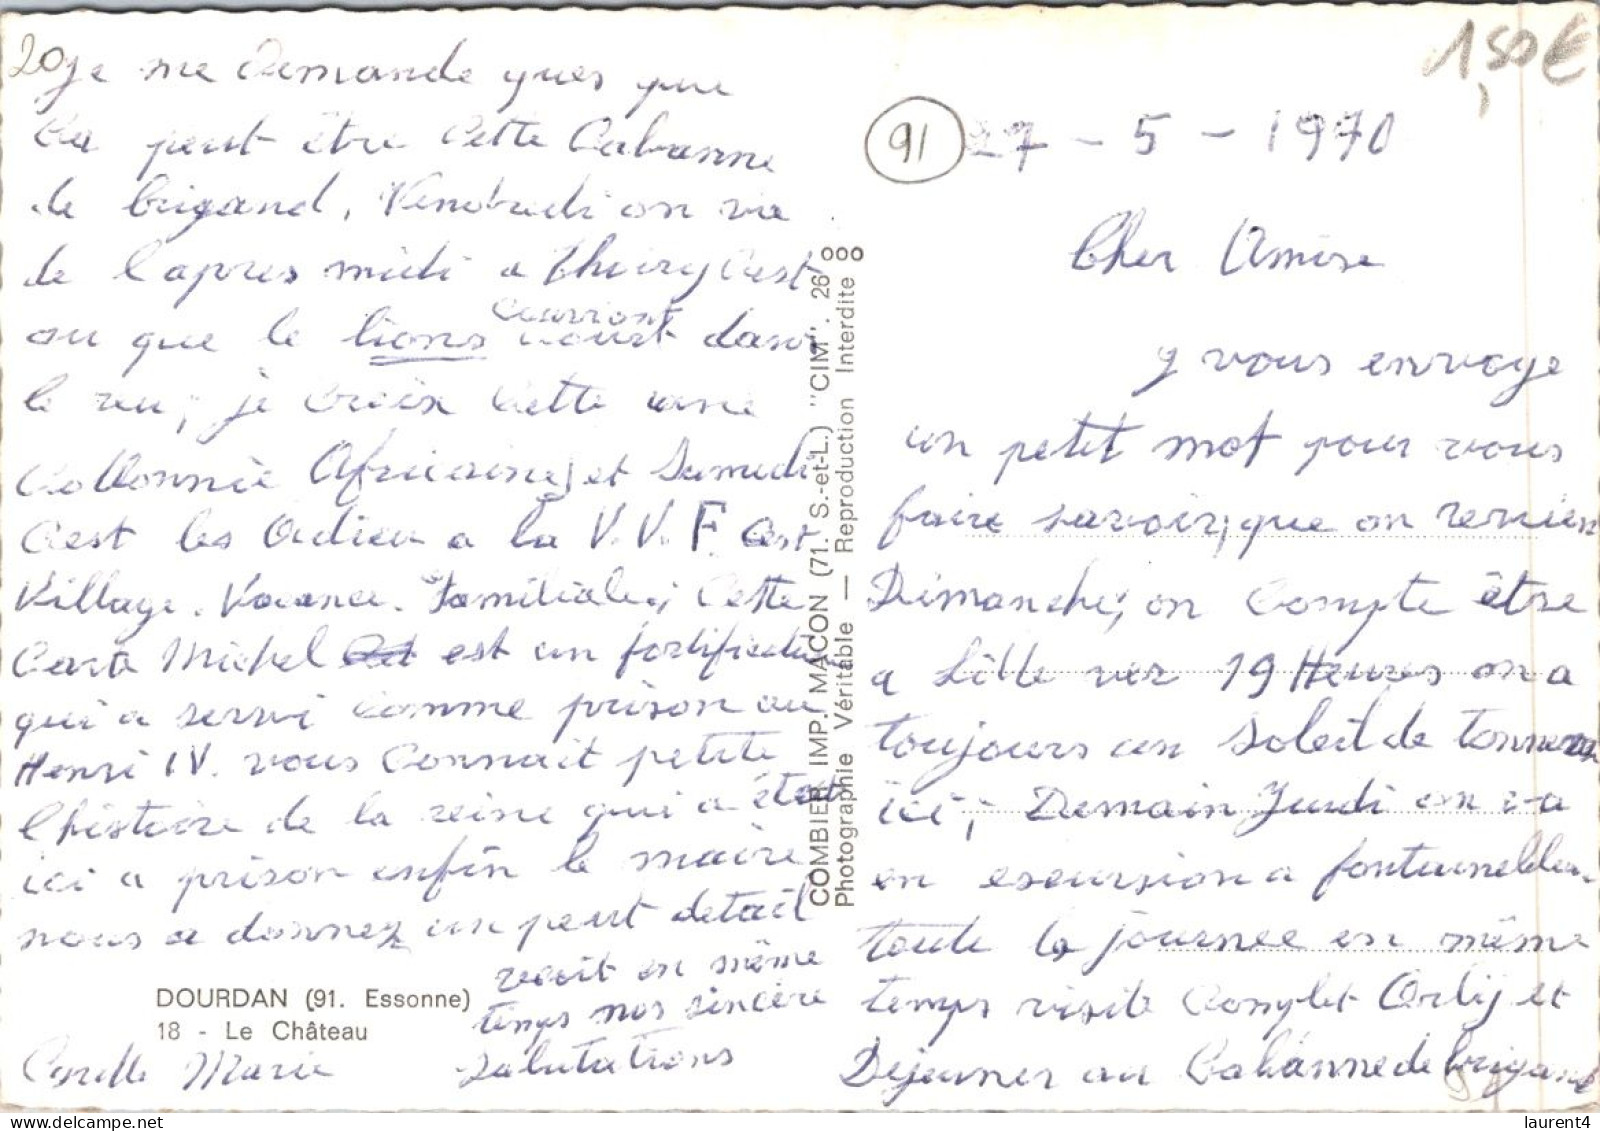 1,50€
91
27 - 5 - 1970
Cher Amise
y vous envoye
un petit mot pour vous
faire savoir, que on revien
Dimanche, on Compte être
a Lille ver 19 Heures on a
toujours un Soleil de tonnerre
ici, Demain Jeudi on va
en escursion a fontainebleau
toute la journee en même
temps visite Complet Orly et
Dejeuner au Cabanne de brigand
20
Je me demande ques que
Ca peut être Cette Cabanne
de brigand, Vendredi on va
de l'apres midi a Thoiry Cest
ou que le lions courront dans
le rue, je Croix Cette une
Collonnie Africaine, et Samedi
Cest les Adieu a la V.V.F. Cest
Village. Vacance. Familiale, Cette
Carte Michel est un fortification
qui a servi Comme prison au
Henri IV. vous Connait petite
l'histoire de la reine qui a était
ici a prison enfin le maire
nous a donnez un peut detail
recoit en même
temps nos sincère
salutations
Marie
DOURDAN (91. Essonne)
18 - Le Château
COMBIER IMP. MACON (71. S.-et-L.) "CIM". 26
Photographie Véritable — Reproduction Interdite
laurent4